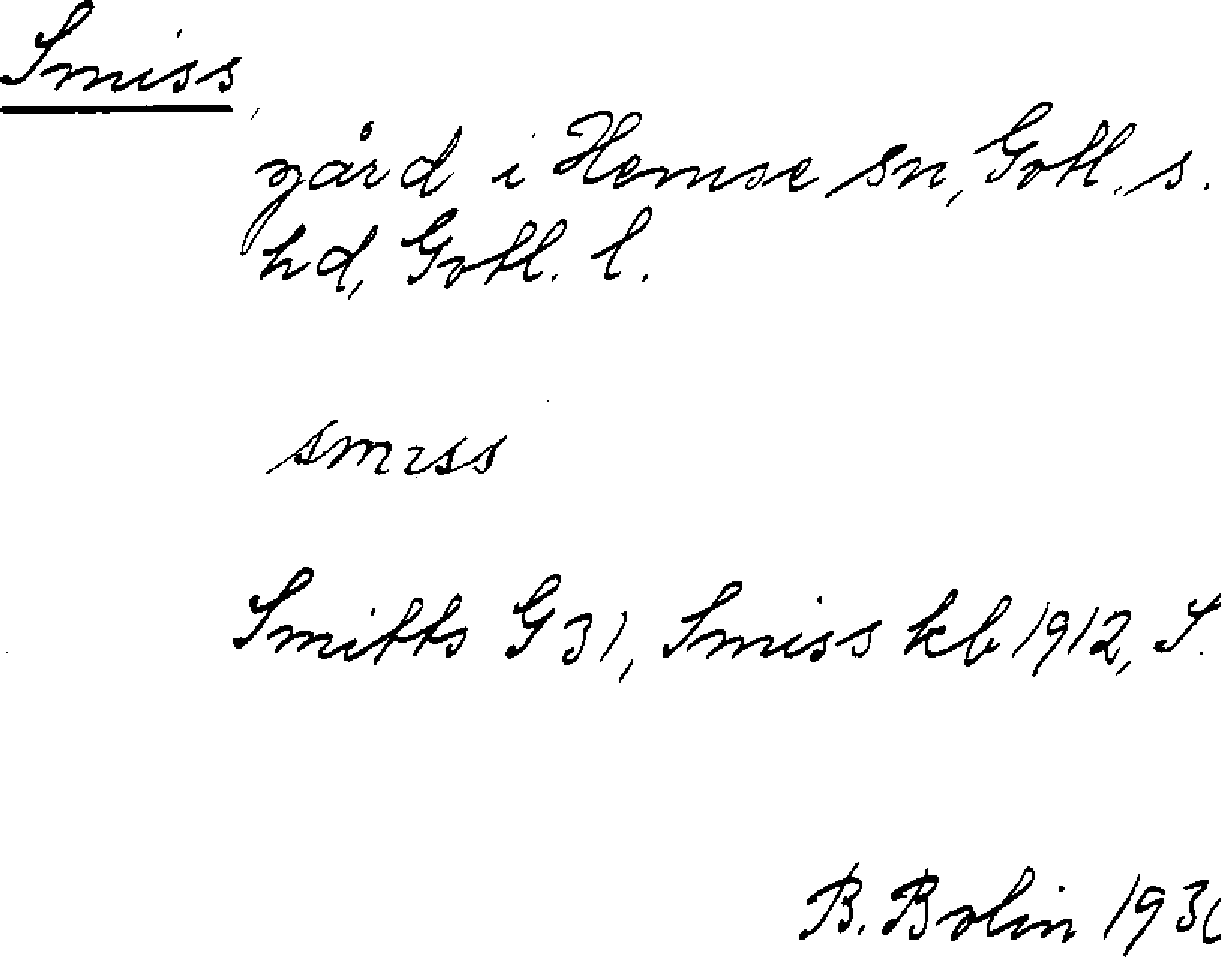 Smiss,
gård i Hemse sn, Gotl. s.
hd, Gotl. l.
smıss
Smitts G 31, Smiss kb 1912, S.
B. Bolin